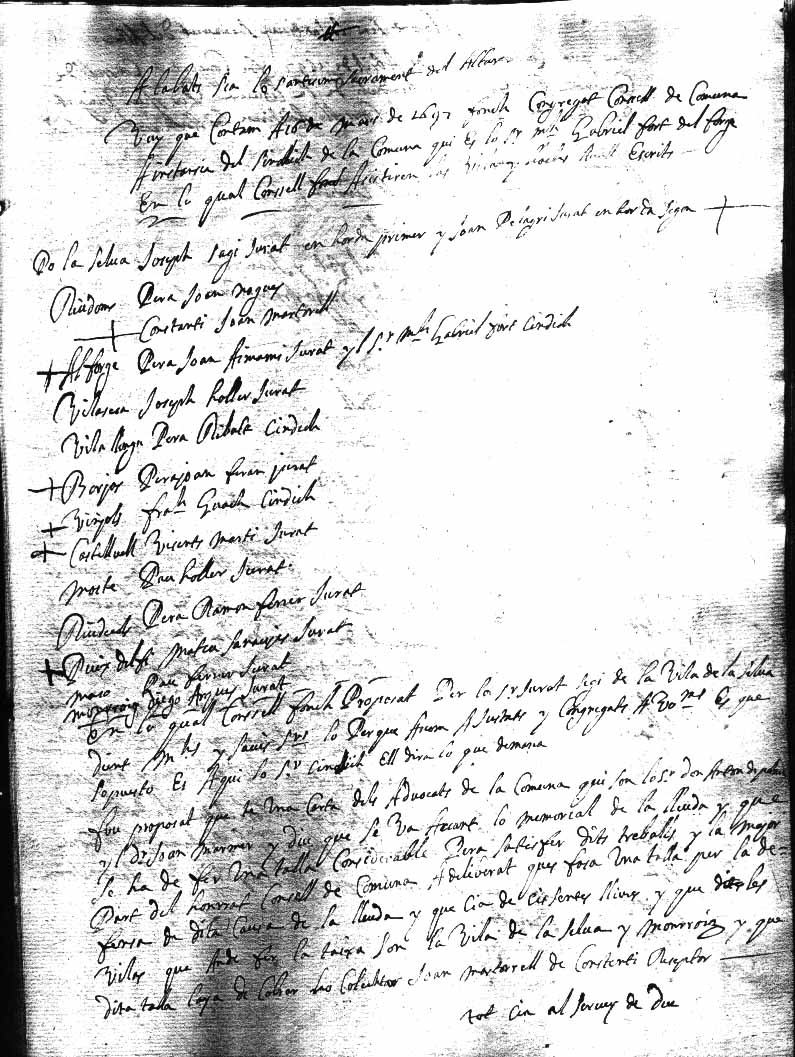 Alabats sia lo santissim sacrament del Altar
Vuy que contam als de Mars de 1697 fonch Congregat Consell de Comuna
A instansia del sindich de la Comuna qui es lo Sr mtt Gabriel fort del forge
En lo qual Consell foret Asistiren los Escrits
Po la selva Joseph sagi Jurat en horde primer y Joan Pelagri Jurat en horda segon
Riudoms Pera Joan nogues
Constanti Joan martorell
Alforge Pera Joan Aimami Jurat y l Sr mtt Gabriel fort Cindich
Vilaseca Joseph holler Jurat
Vila llonga Pera Ribalta Cindich
Borjas Perajoan feran jurat
Vinyols frach Guach Cindich
Castellvell Visents marti Jurat
Moste Pau holler Jurat
Riudecols Pera Ramon ferrer Jurat
Puixdelfi Mateu Jurat
Maso Pau ferrer Jurat
Monrroig diego Jurat
En lo qual Consell fonch Proposat Per lo sr Jurat sagi de la Vila de la selva
dient mls y savis srs lo Perque Avem Ajuntats y Congregats A Vo ms Es que
soposto Es Aqui lo sr Cindich Ell dira lo que demana
fou proposat que te una Carta dels Advocats de la Comuna qui son lo sr don Anton
y l dr Joan mariner y diu que se va facent lo memorial de la lleuda y que
se ha de fer una talla Considerable Pera satisfer dits treballs y la major
Part del honrrat Consell de Comuna Adeliverat ques fasa una talla per la de-
fensa de dita Causa de la lleuda y que cia de sissentes lliures y que dites les
Vilas que Ande fer la taixa son la Vila de la selva y Monrroig y que
dita talla Caja de Cobrar lo Colechtor Joan martorrell de Constanti Reseptor
tot cia al servey de Deu